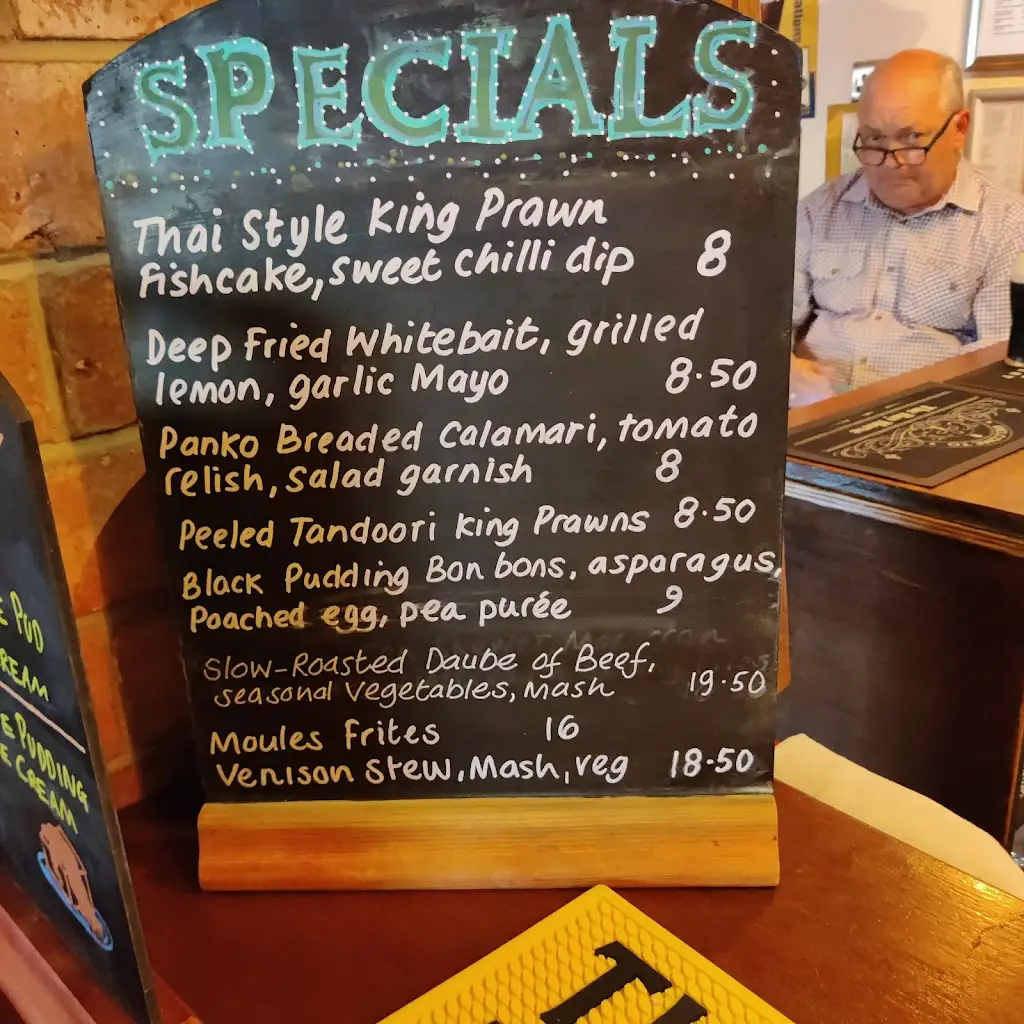 SPECIALS
Thai Style King Prawn
Fishcake, sweet chilli dip 8
Deep Fried Whitebait, grilled
lemon, garlic Mayo 8.50
Panko Breaded Calamari, tomato
relish, salad garnish 8
Peeled Tandoori King Prawns 8.50
Black Pudding Bon bons, asparagus,
Poached egg, pea purée 9
Slow-Roasted Daube of Beef,
seasonal vegetables, Mash 19.50
Moules Frites 16
Venison Stew, Mash, veg 18.50
E PUD
REAM
E PUDDING
E CREAM